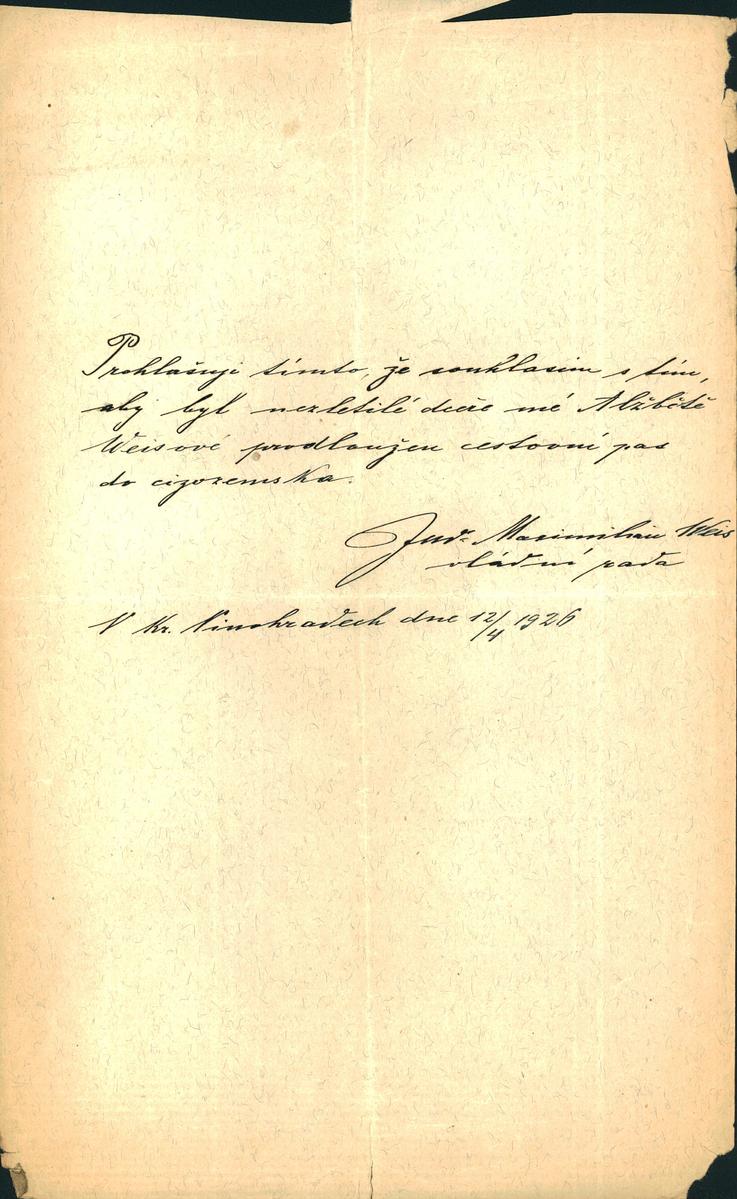 Prohlašuji tímto, že souhlasím s tím,
aby byl nezletilé dceři mé Alžbětě
Weisové prodloužen cestovní pas
do cizozemska.
Judr Maximilian Weis
vládní rada
V Kr. Vinohradech dne 12/4 1926